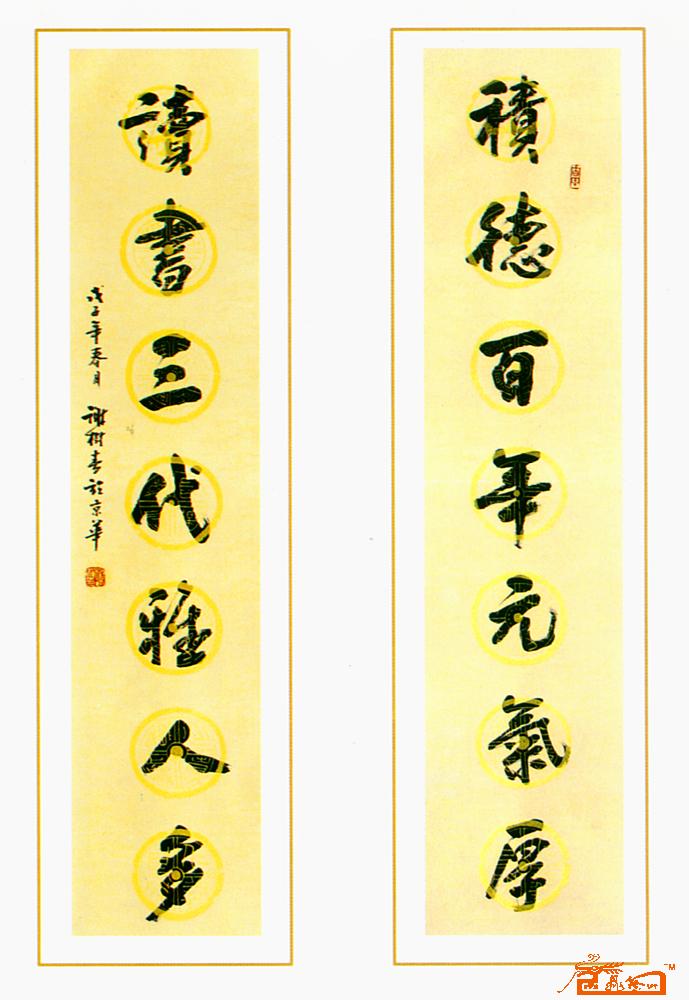 積德百年元氣厚
讀書三代雅人多
戊子年春月 謝樹青於京華